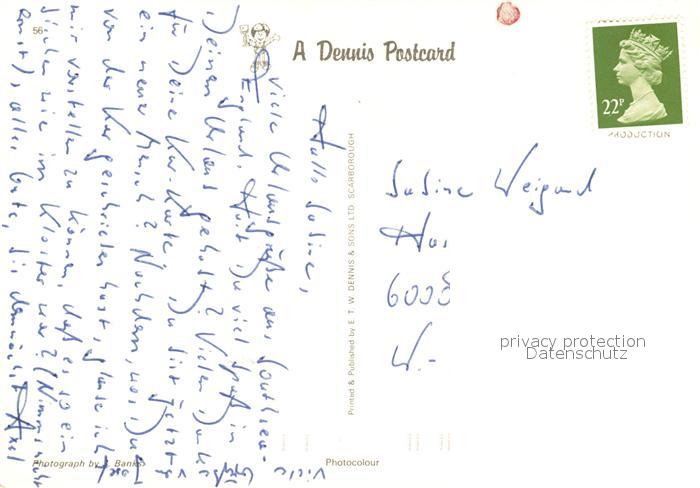 56
A Dennis Postcard
22P
PRODUCTION
Hallo Sabine,
viele Urlaubsgrüße aus Southsea -
England. Hast Du viel Spaß in
Deinem Urlaub gehabt? Vielen Dank
für Deine Kur-Karte. Du bist jetzt
ein neuer Mensch? Nachdem, was Du
von der Kur geschrieben hast, glaube ich
mir vorstellen zu können, daß es so ein
bißchen wie im Kloster war? (Nimm's nicht
ernst), alles Gute, bis demnächst Axel
Viele
Printed & Published by E. T. W. DENNIS & SONS LTD. SCARBOROUGH
Sabine Weigand
6003
W.-
privacy protection
Datenschutz
Photograph by Banks
Photocolour